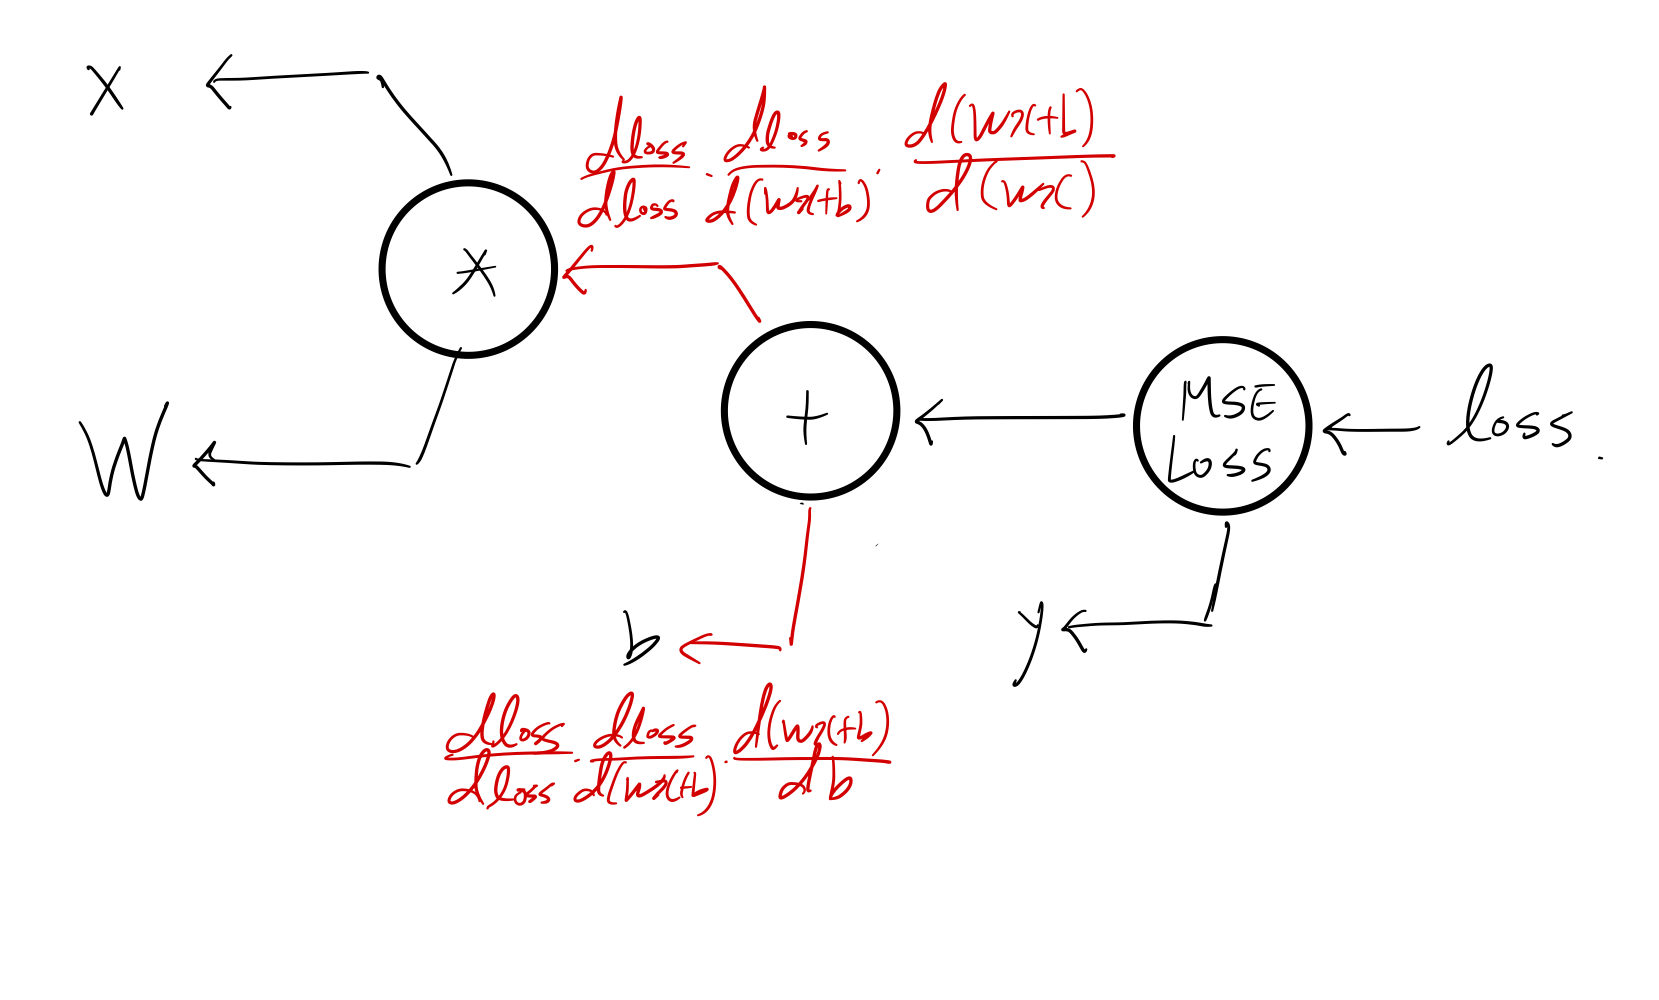 x
dloss/dloss · dloss/d(wx+b) · d(wx+b)/d(wx)
*
+
MSE
Loss
loss.
W
b
y
dloss/dloss · dloss/d(wx+b) · d(wx+b)/db